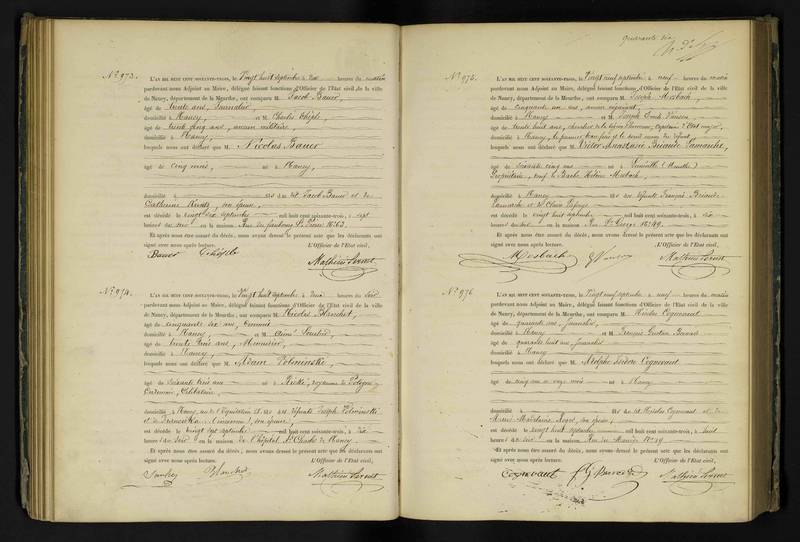 Nº 973.
L'AN MIL HUIT CENT SOIXANTE-TROIS, le Vingt huit septembre à dix heures du matin
pardevant nous Adjoint au Maire, délégué faisant fonctions d'Officier de l'Etat civil de la ville
de Nancy, département de la Meurthe, ont comparu M. Jacob Bauer,
âgé de trente ans, Journalier,
domicilié à Nancy, et M. Charles
âgé de trente cinq ans, ancien militaire,
domicilié à Nancy,
lesquels nous ont déclaré que M. Nicolas Bauer
âgé de cinq mois, né à Nancy,
domicilié à fils de dit Jacob Bauer et de
Catherine son épouse,
est décédé le vingt sept septembre mil huit cent soixante-trois, à sept
heures du soir en la maison Rue du faubourg St. Pierre
Et après nous être assuré du décès, nous avons dressé le présent acte que les déclarants ont
signé avec nous après lecture. L'Officier de l'Etat civil,
Bauer
Nº 974.
L'AN MIL HUIT CENT SOIXANTE-TROIS, le Vingt huit septembre à deux heures du soir
pardevant nous Adjoint au Maire, délégué faisant fonctions d'Officier de l'Etat civil de la ville
de Nancy, département de la Meurthe, ont comparu M. Nicolas Blanchet,
âgé de cinquante six ans, Commis
domicilié à Nancy et M. Aimé
âgé de trente trois ans, Menuisier,
domicilié à Nancy,
lesquels nous ont déclaré que M. Adam
âgé de soixante trois ans né à royaume de Pologne,
Célibataire,
domicilié à Nancy, fils de défunts Joseph
et de son épouse,
est décédé le vingt sept septembre mil huit cent soixante-trois, à dix
heures du soir en la maison de l'hôpital St. Charles de Nancy.
Et après nous être assuré du décès, nous avons dressé le présent acte que les déclarants ont
signé avec nous après lecture. L'Officier de l'Etat civil,
Blanchet
quarante dix
Nº 975.
L'AN MIL HUIT CENT SOIXANTE-TROIS, le Vingt neuf septembre à neuf heures du matin
pardevant nous Adjoint au Maire, délégué faisant fonctions d'Officier de l'Etat civil de la ville
de Nancy, département de la Meurthe, ont comparu M. Joseph Mesbach,
âgé de cinquante un ans, ancien
domicilié à Nancy et M. Joseph Emile
âgé de trente huit ans, chevalier de la Légion d'honneur, Capitaine d'Etat major,
domicilié à Nancy, le premier beau frère et le second neveu du défunt,
lesquels nous ont déclaré que M. Victor Anastase Briande Lamarche,
âgé de soixante cinq ans né à Lunéville (Meurthe)
Propriétaire, veuf de Barbe Hélène Mesbach,
domicilié à Nancy fils de défunts François Briande
Lamarche et de Claire
est décédé le vingt huit septembre mil huit cent soixante-trois, à six
heures du soir en la maison Rue St. Georges Nº 49.
Et après nous être assuré du décès, nous avons dressé le présent acte que les déclarants ont
signé avec nous après lecture. L'Officier de l'Etat civil,
Mesbach
Nº 976
L'AN MIL HUIT CENT SOIXANTE-TROIS, le Vingt neuf septembre à neuf heures du matin
pardevant nous Adjoint au Maire, délégué faisant fonctions d'Officier de l'Etat civil de la ville
de Nancy, département de la Meurthe, ont comparu M. Nicolas Cognevaut
âgé de quarante ans, Journalier,
domicilié à Nancy et M. François Gustave
âgé de quarante huit ans, Journalier
domicilié à Nancy
lesquels nous ont déclaré que M. Adolphe Isidore Cognevaut
âgé de cinq ans et onze mois né à Nancy
domicilié à fils de dit Nicolas Cognevaut et de
Marie Madeleine son épouse,
est décédé le vingt huit septembre mil huit cent soixante-trois, à huit
heures du soir en la maison Rue du Nº 19
Et après nous être assuré du décès, nous avons dressé le présent acte que les déclarants ont
signé avec nous après lecture. L'Officier de l'Etat civil,
Cognevaut